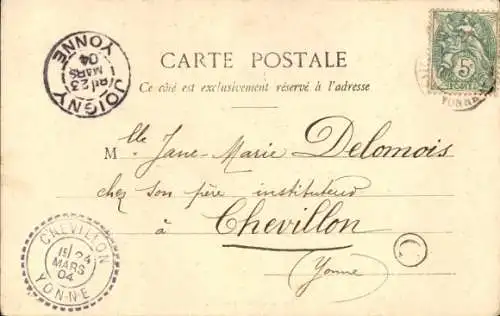 CARTE POSTALE
Ce côté est exclusivement réservé à l'adresse
JOIGNY
23
MARS
04
YONNE
5c
POSTES
YONNE
Mlle Jane-Marie Delomois
chez son père instituteur
à
Chevillon
(Yonne)
C
CHEVILLON
24
MARS
04
YONNE